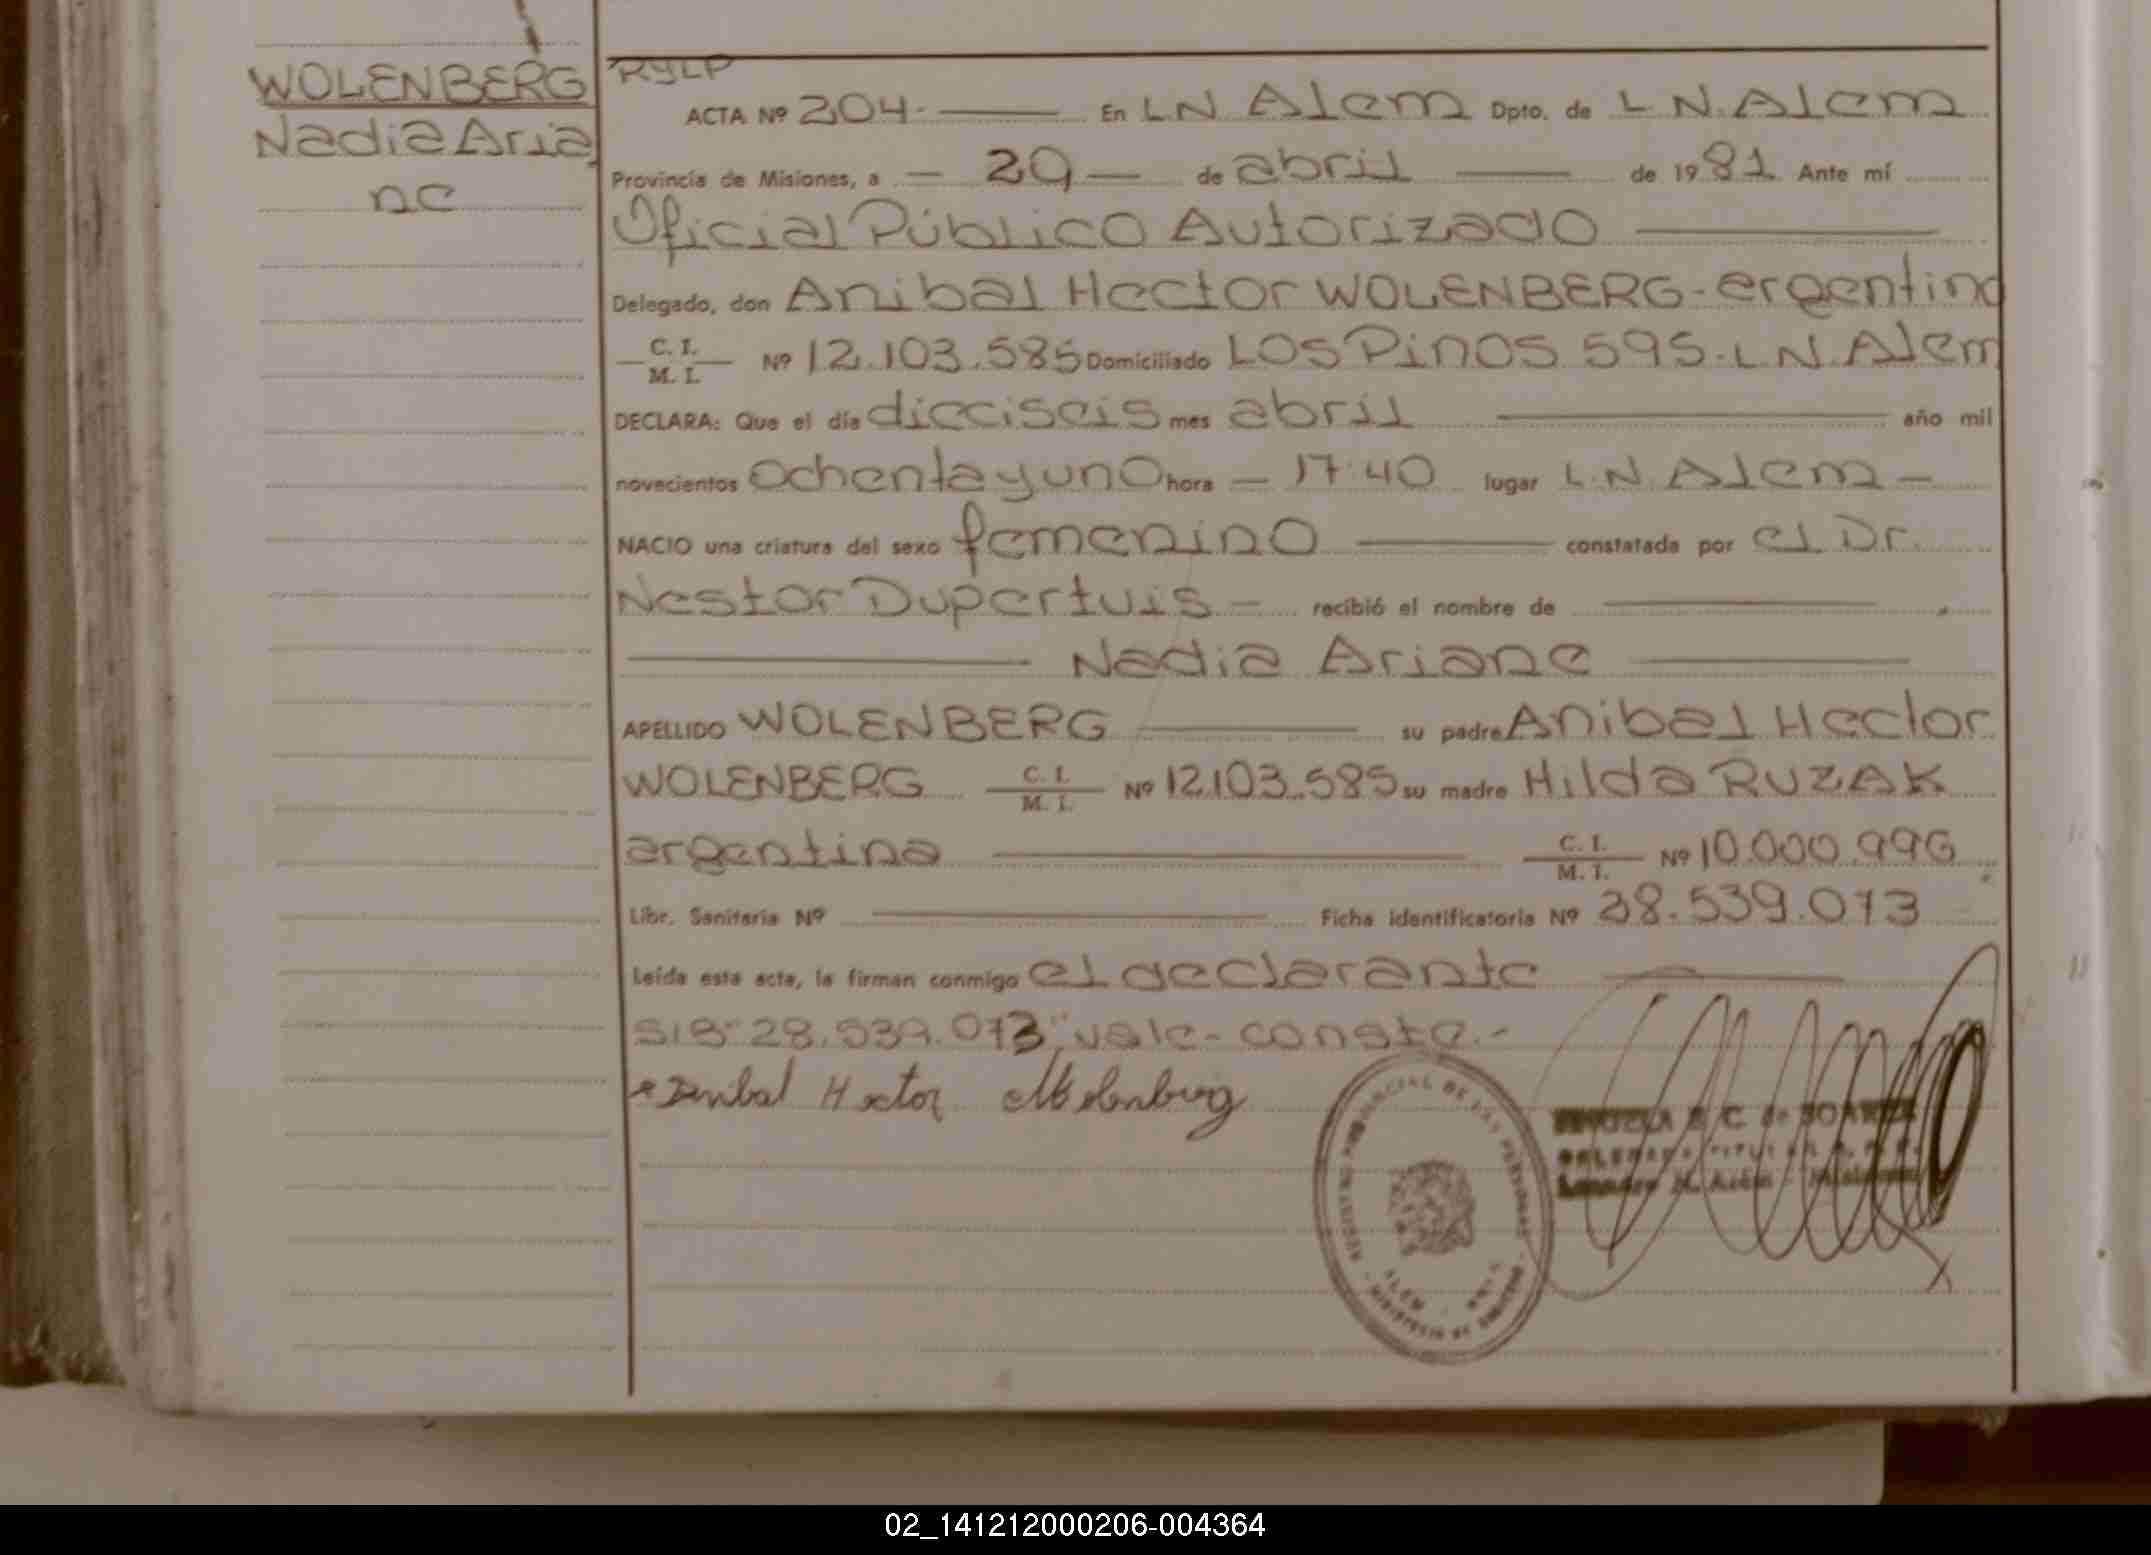 WOLENBERG
Nadia Aria
ne
RYLP
ACTA Nº 204.- En L N Alem Dpto. de L N. Alem
Provincia de Misiones, a - 29 - de abril de 1981 Ante mí
Oficial Público Autorizado
Delegado, don Anibal Hector WOLENBERG - argentino
C. I. / M. I. Nº 12.103.585 Domiciliado Los Pinos 595. L N. Alem
DECLARA: Que el día dieciseis mes abril año mil
novecientos ochenta y uno hora - 17.40 lugar L.N. Alem -
NACIO una criatura del sexo femenino constatada por el Dr.
Nestor Dupertuis - recibió el nombre de
Nadia Ariane
APELLIDO WOLENBERG su padre Anibal Hector
WOLENBERG C. I. / M. I. Nº 12.103.585 su madre Hilda RUZAK
argentina C. I. / M. I. Nº 10.000.996
Libr. Sanitaria Nº Ficha identificatoria Nº 28.539.073
Leída esta acta, la firman conmigo el declarante
S/B "28.539.073" vale - conste.-
Anibal Hector Wolenberg
REGISTRO PROVINCIAL DE LAS PERSONAS - MINISTERIO DE GOBIERNO
ALEM
E. C. de SOAREZ
DELEGADA TITULAR
Leandro N. Alem - Misiones
02_141212000206-004364